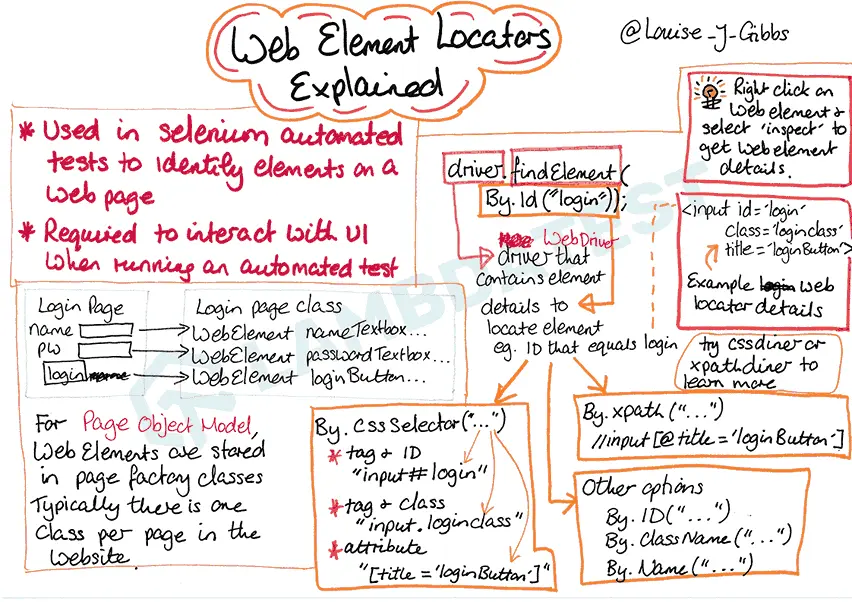 Web Element Locators
Explained
@Louise_J_Gibbs
* Used in selenium automated
tests to identify elements on a
web page
* Required to interact with UI
when running an automated test
Login Page
name
pw
login
Login page class
WebElement nameTextbox...
WebElement passwordTextbox...
WebElement loginButton...
For Page Object Model,
Web Elements are stored
in page factory classes
Typically there is one
Class per page in the
website.
driver.findElement(
By.Id("login"));
WebDriver
driver that
contains element
details to
locate element
eg. ID that equals login
Right click on
web element &
select 'inspect' to
get web element
details.
<input id='login'
class='loginclass'
title='loginButton'>
Example web
locator details
try cssdiner or
xpathdiner to
learn more
By.cssSelector("...")
* tag & ID
"input#login"
* tag & class
"input.loginclass"
* attribute
"[title='loginButton']"
By.xpath("...")
//input[@title='loginButton']
Other options
By.ID("...")
By.ClassName("...")
By.Name("...")
LAMBDATEST